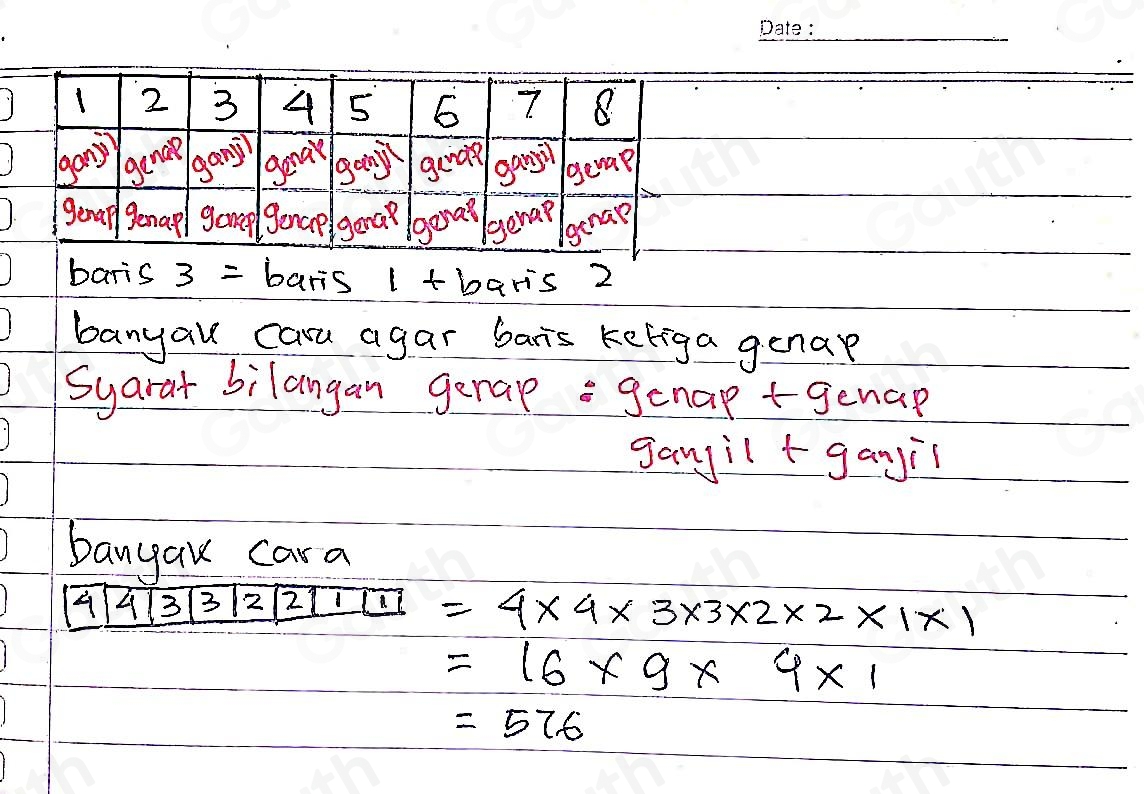 Date :
1 2 3 4 5 6 7 8
ganjil genap ganjil genap ganjil genap ganjil genap
genap genap genap genap genap genap genap genap
baris 3 = baris 1 + baris 2
banyak cara agar baris ketiga genap
Syarat bilangan genap : genap + genap
ganjil + ganjil
banyak cara
4 4 3 3 2 2 1 1 = 4 × 4 × 3 × 3 × 2 × 2 × 1 × 1
= 16 × 9 × 4 × 1
= 576